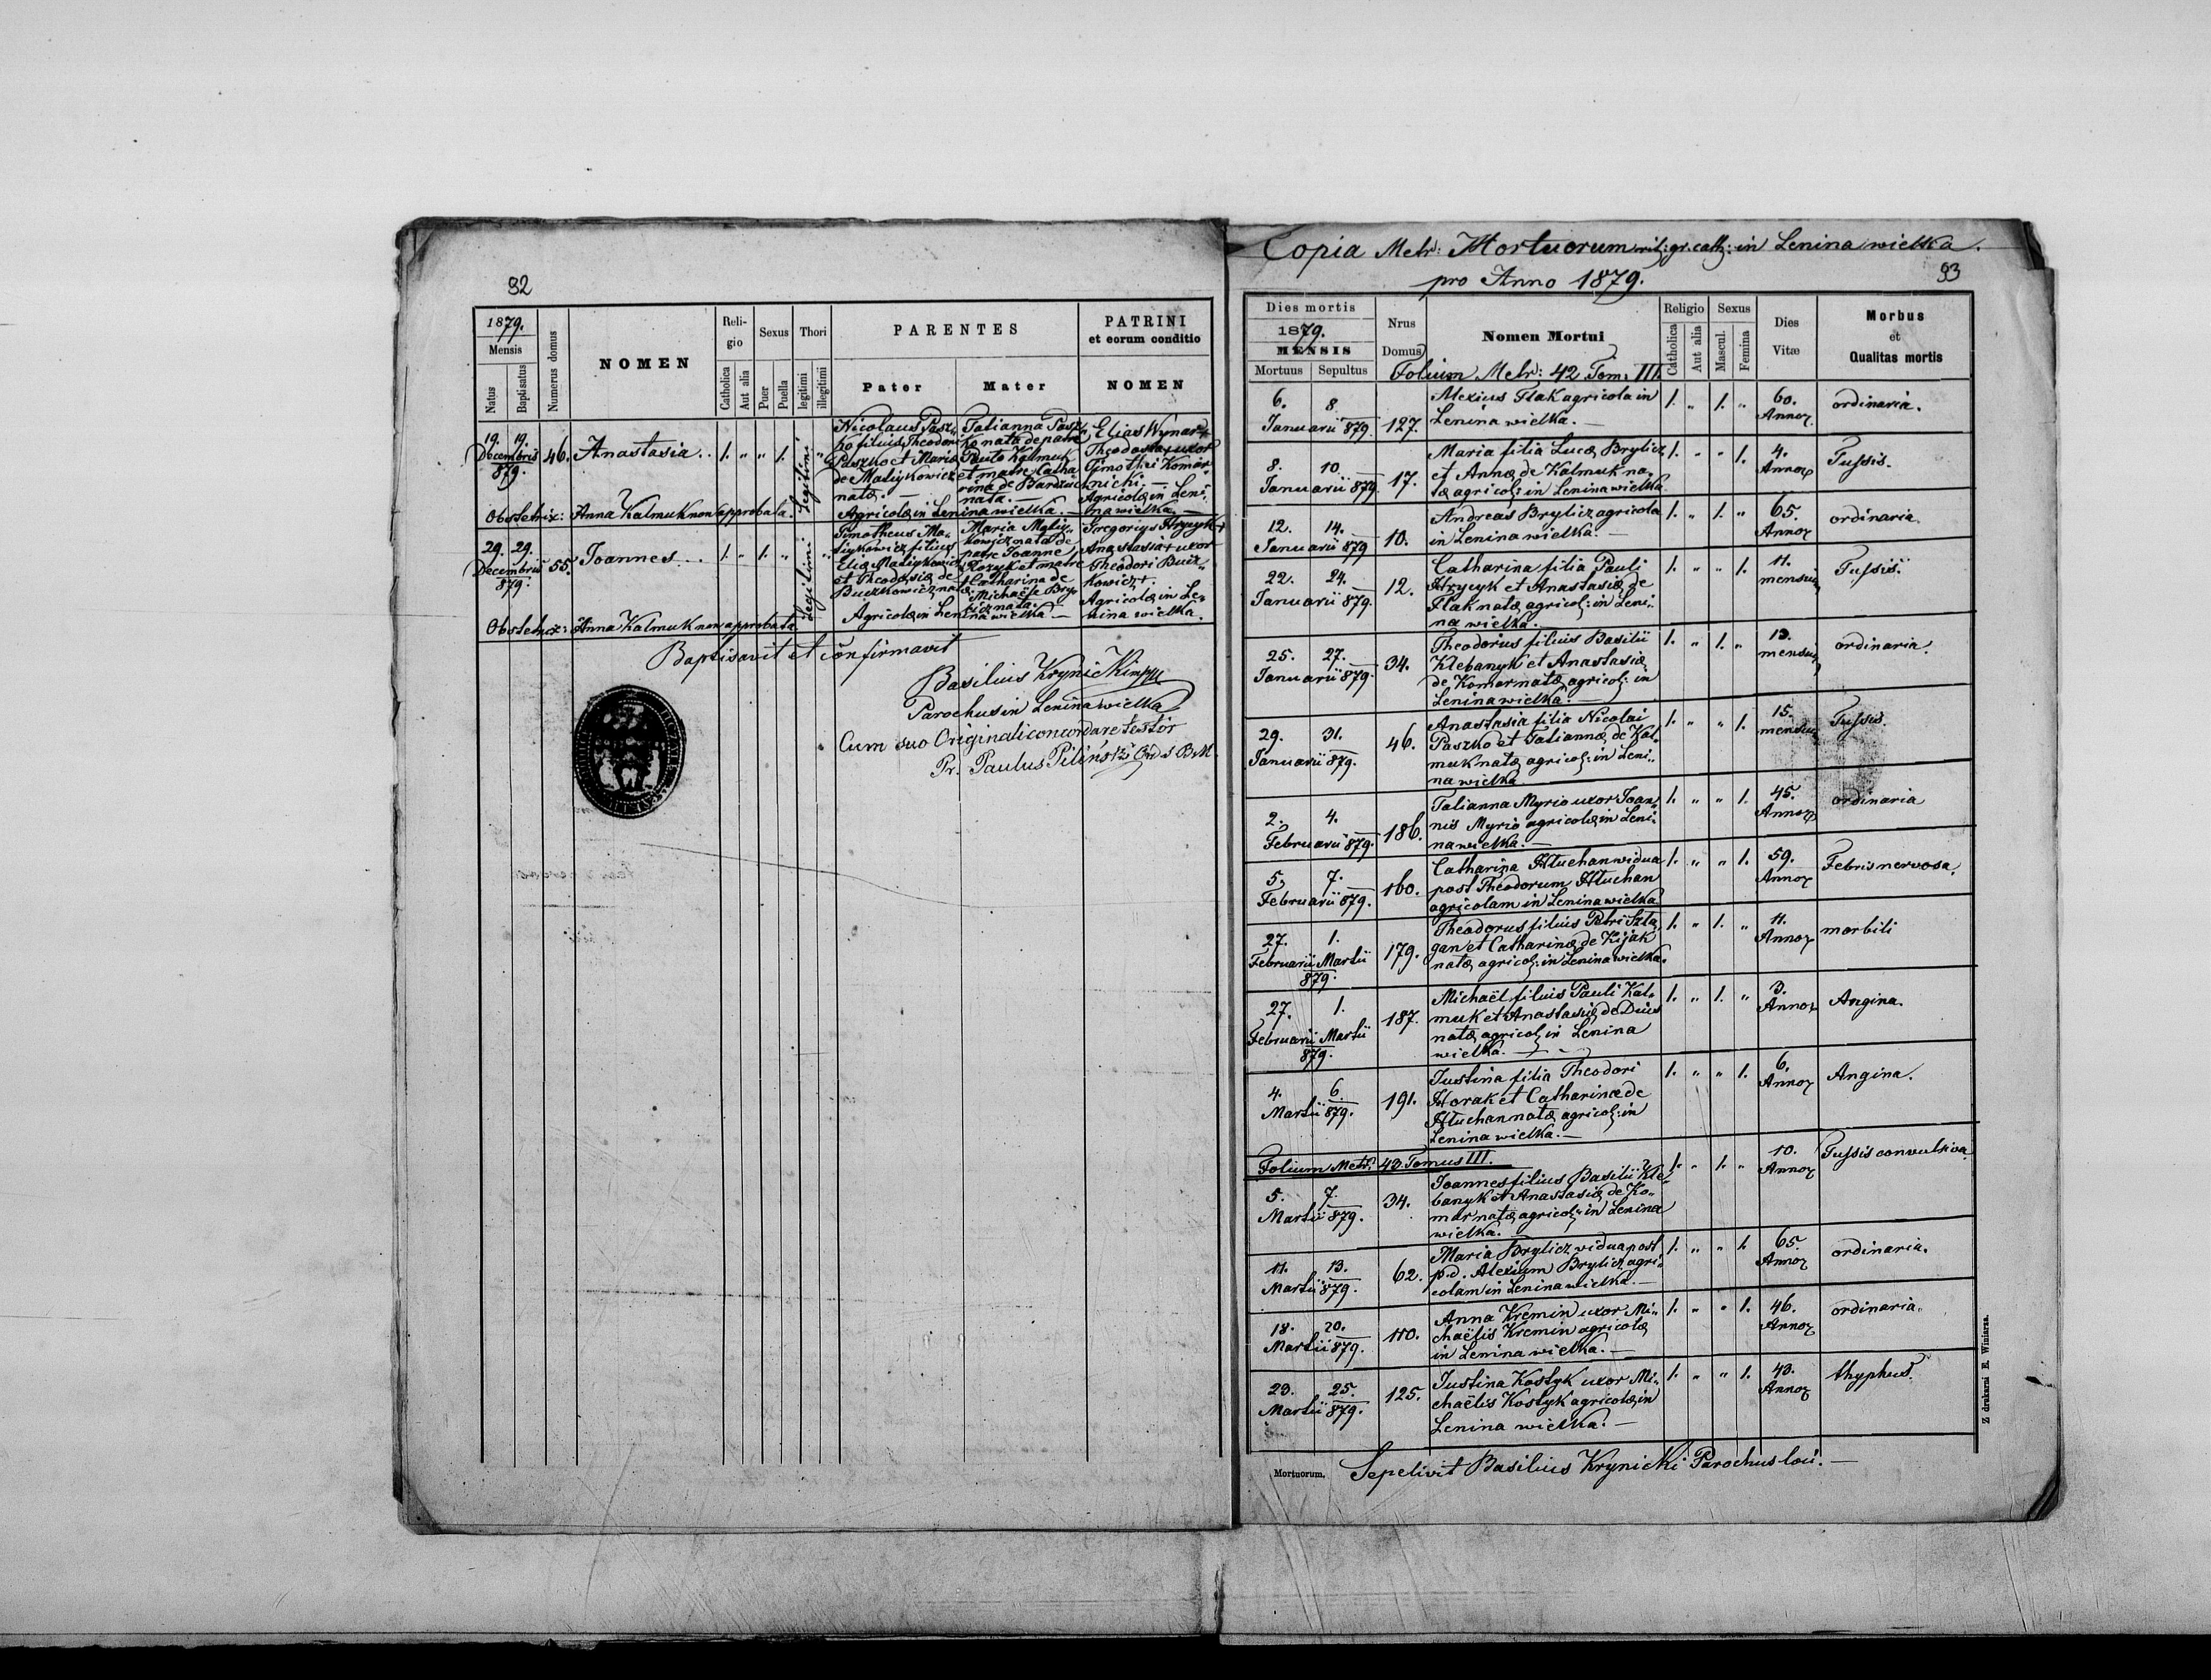 92
1879.
Mensis
Natus
Baptisatus
Numerus domus
NOMEN
Reli-
gio
Catholica
Aut alia
Sexus
Puer
Puella
Thori
legitimi
illegitimi
PARENTES
Pater
Mater
PATRINI
et eorum conditio
NOMEN
19. 19.
Decembris
879.
46.
Anastasia.
1. „ „ 1.
legitimi
Nicolaus Pasz-
ko filius Theodori
Paszko et Mariæ
de Matiykowicz
natæ. —
Tatianna Pasz-
ko nata de patre
Paulo Kalmuk
et matre Catha
rina de Bardzicz
nata. —
Elias Wynar +
Theodosia + uxor
Timothei Komar-
nicki. —
Agricolæ in Leni-
na wielka. —
Agricolæ in Lenina wielka. —
Obstetrix: Anna Kalmuk non approbata.
29. 29.
Decembris
879.
55.
Joannes.
1. „ 1. „
legitimi
Timotheus Ma-
tiykowicz filius
Eliæ Matiykowicz
et Theodosiæ de
Buczkowicz natæ
Maria Matiy-
kowicz nata de
patre Joanne
Kozyk et matre
Catharina de
Michaële Bry-
licz nata.
Gregorius Hrycyk +
Anastasia + uxor
Theodori Bucz-
kowicz +.
Agricolæ in Le-
nina wielka.
Agricolæ in Lenina wielka —
Obstetrix: Anna Kalmuk non approbata
Baptisavit et confirmavit
Basilius Krynicki mpp
Parochus in Lenina wielka
Cum suo Originali concordare testor
Pr. Paulus Piliński
Copia Metr: Mortuorum rit: gr. cath: in Lenina wielka.
pro Anno 1879.
93
Dies mortis
1879.
MENSIS
Mortuus
Sepultus
Nrus
Domus
Nomen Mortui
Religio
Catholica
Aut alia
Sexus
Mascul.
Femina
Dies
Vitæ
Morbus
et
Qualitas mortis
Folium Metr: 42 Tom. III.
6. 8
Januarii 879.
127.
Alexius Flak agricola in
Lenina wielka. —
1. „ 1. „
60.
Annor
ordinaria.
8. 10.
Januarii 879.
17.
Maria filia Lucæ Brylicz
et Annæ de Kalmuk na-
tæ agricol: in Lenina wielka.
1. „ „ 1.
4.
Annor
Tussis.
12. 14.
Januarii 879
10.
Andreas Brylicz agricola
in Lenina wielka. —
1. „ 1. „
65.
Annor
ordinaria.
22. 24.
Januarii 879.
12.
Catharina filia Pauli
Hrycyk et Anastasiæ de
Flak natæ agricol: in Leni-
na wielka. —
1. „ „ 1.
11.
mensium
Tussis.
25. 27.
Januarii 879.
34.
Theodorius filius Basilii
Klebanyk et Anastasiæ
de Komar natæ agricol: in
Lenina wielka. —
1. „ 1. „
13.
mensium
ordinaria.
29. 31.
Januarii 879.
46.
Anastasia filia Nicolai
Paszko et Tatiannæ de Kal-
muk natæ agricol: in Leni-
na wielka
1. „ „ 1.
15.
mensium
Tussis.
2. 4.
Februarii 879.
186.
Tatianna Myrio uxor Joan-
nis Myrio agricolæ in Leni-
na wielka. —
1. „ „ 1.
45.
Annor
ordinaria
5. 7.
Februarii 879.
160.
Catharina Hluchan vidua
post Theodorum Hluchan
agricolam in Lenina wielka
1. „ „ 1.
59.
Annor
Febris nervosa.
27. 1.
Februarii Martii
879.
179.
Theodorus filius Petri Szla-
gan et Catharinæ de Kijak
natæ agricol: in Lenina wielka.
1. „ 1. „
11.
Annor
morbili
27. 1.
Februarii Martii
879.
187.
Michaël filius Pauli Kal-
muk et Anastasiæ de Dzius
natæ agricol: in Lenina
wielka. —
1. „ 1. „
3.
Annor
Angina.
4. 6
Martii 879.
191.
Justina filia Theodori
Horak et Catharinæ de
Hluchan natæ agricol: in
Lenina wielka. —
1. „ „ 1.
6.
Annor
Angina.
Folium Metr. 43 Tomus III.
5. 7.
Martii 879.
34.
Joannes filius Basilii Kle-
banyk et Anastasiæ de Ko-
mar natæ agricol: in Lenina
wielka.
1. „ 1. „
10.
Annor
Tussis convulsiva
11. 13.
Martii 879.
62.
Maria Brylicz vidua post
p.d. Alexium Brylicz agri-
colam in Lenina wielka. —
1. „ „ 1.
65.
Annor
ordinaria.
18. 20.
Martii 879.
110.
Anna Kremin uxor Mi-
chaëlis Kremin agricolæ
in Lenina wielka. —
1. „ „ 1.
46.
Annor
ordinaria.
23. 25.
Martii 879.
125.
Justina Kostyk uxor Mi-
chaëlis Kostyk agricolæ in
Lenina wielka. —
1. „ „ 1.
43.
Annor
thyphus.
Mortuorum.
Sepelivit Basilius Krynicki Parochus loci. —
Z drukarni E. Winiarza.